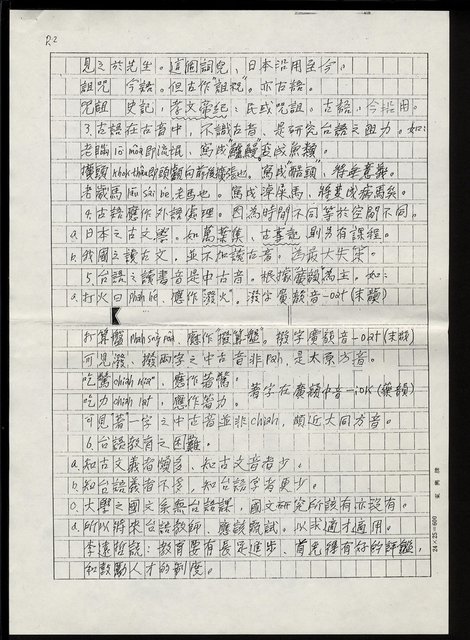 P.2
見之於先生。這個詞兒、日本沿用至今。
詛咒 今語。但古作"詛祝"。亦古語。
咒詛 史記,孝文帝紀:民或咒詛。古語,今沿用。
3.古語在古音中,不識古音,是研究台語之阻力。如:
老 lō môa 即流氓,寫成鱸鰻,變成魚類。
khok thâu 即頭顱向前後擴張也,寫成"酷頭",將無意義。
老歲馬 lāu sài bé 老馬也。寫成 馬,將變成病馬矣。
4.古語應作外語處理。因為時間不同等於空間不同。
a.日本之古文學。如萬葉集、古事記 則另有課程。
b.我國之讀古文,並不如讀古音,為最大失策。
5.台語之讀書音是中古音。根據廣韻為主。如:
a.打火 phah hé,應作"潑火"。潑字廣韻音-uat (末韻)
打算盤 phah sǹg pôa,應作"撥算盤"。撥字廣韻音-uat (末韻)
可見潑、撥兩字之中古音非 pah,是太原方音。
吃驚 chiah kiaⁿ,應作著驚。
吃力 chiah lat,應作著力。著字在廣韻中音-iok (藥韻)
可見"著"一字之中古音並非 chiah,頗近大同方音。
6.台語教育之困難。
a.知古文義者頗多、知古文音者少。
b.知台語義者不多,知台語字者更少。
c.大學之國文系無台語課,國文研究所該有亦沒有。
d.所以將來台語教師,應該甄試。以求適才適用。
李遠哲說:教育要有長足進步、首先得有好的評鑑,
和鼓勵人才的制度。
24×25=600